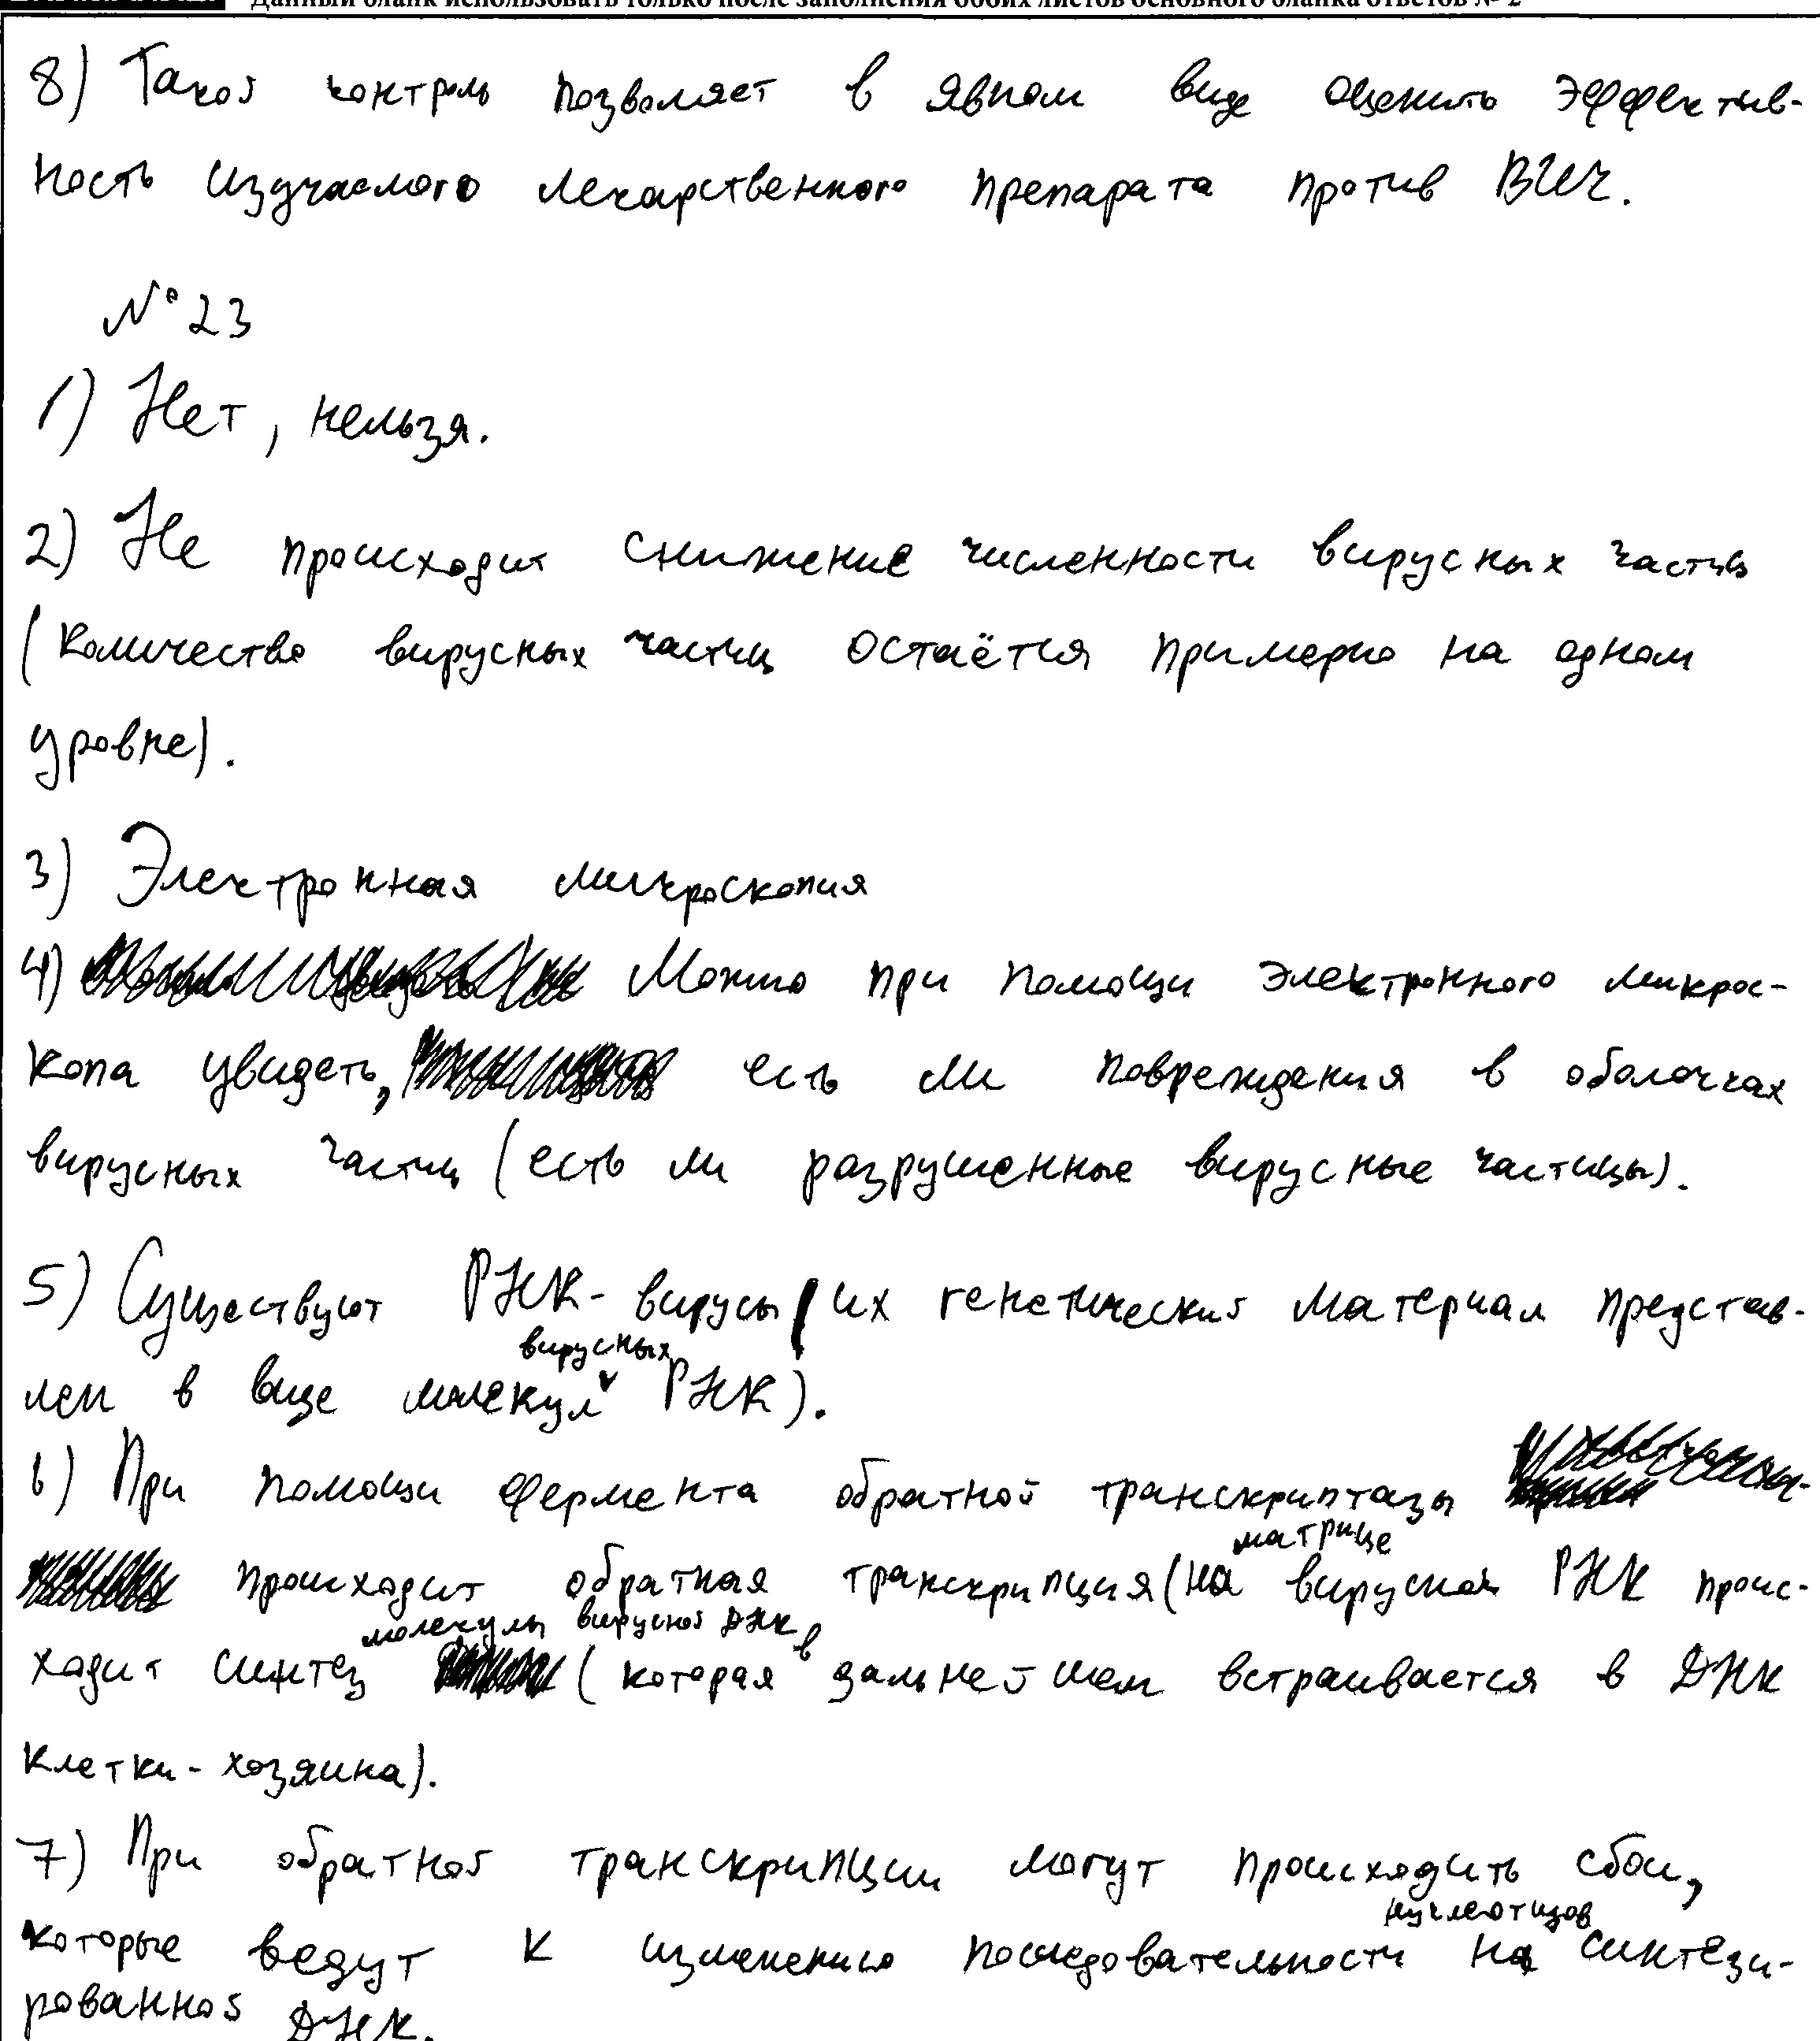 Данный бланк использовать только после заполнения обоих листов основного бланка ответов № 2
8) Такой контроль позволяет в явном виде оценить эффектив-
ность изучаемого лекарственного препарата против ВИЧ.
№ 23
1) Нет, нельзя.
2) Не происходит снижение численности вирусных частиц
(количество вирусных частиц остаётся примерно на одном
уровне).
3) Электронная микроскопия
4) Можно при помощи электронного микрос-
копа увидеть, есть ли повреждения в оболочках
вирусных частиц (есть ли разрушенные вирусные частицы).
5) Существуют РНК-вирусы (их генетический материал представ-
лен в виде молекул вирусных РНК).
6) При помощи фермента обратной транскриптазы
происходит обратная транскрипция (на матрице вирусной РНК проис-
ходит синтез молекулы вирусной ДНК (которая в дальнейшем встраивается в ДНК
клетки-хозяина).
7) При обратной транскрипции могут происходить сбои,
которые ведут к изменению последовательности нуклеотидов на синтези-
рованной ДНК.